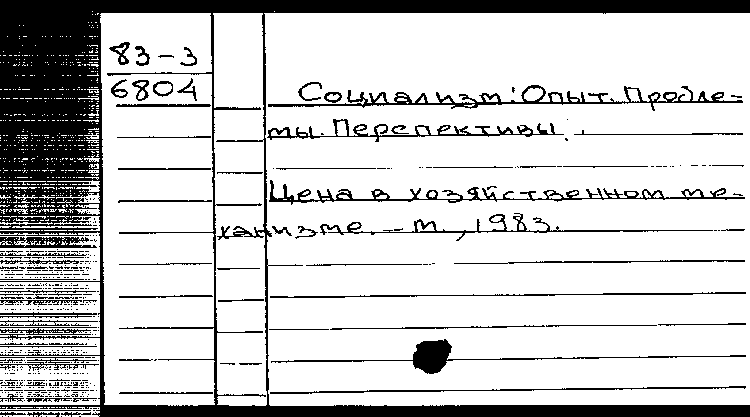 83-3
6804
Социализм: Опыт. Пробле-
мы. Перспективы.
Цена в хозяйственном ме-
ханизме. - м., 1983.